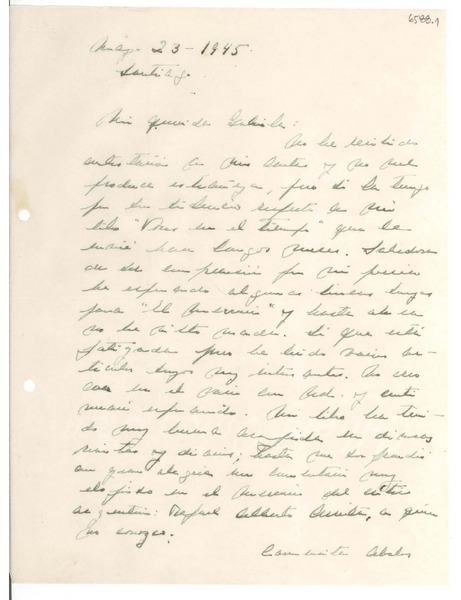 6588.1
Mayo 23 - 1945.
Santiago
Mi querida Gabriela:
No he recibido
contestación a mis cartas y no me
produce extrañeza, pero si la tengo
por su silencio respecto a mi
libro "Voces en el tiempo" que le
envié hace largos meses. Sabedora
de su comprensión por mi poesía
he esperado algunas líneas suyas
para "El Mercurio" y hasta ahora
no he visto nada. Sé que está
fatigada pero he leído varios ar-
tículos suyos muy interesantes. No creo
en el vacío con Ud. y conti-
nuaré esperando. Mi libro ha teni-
do muy buena acogida en diversas
revistas y diarios; hasta me sorprendió
un comentario muy
elogioso en el Mercurio del crítico
argentino: Rafael Alberto Arrieta, a quien
no conozco.
Carmencita Abalos